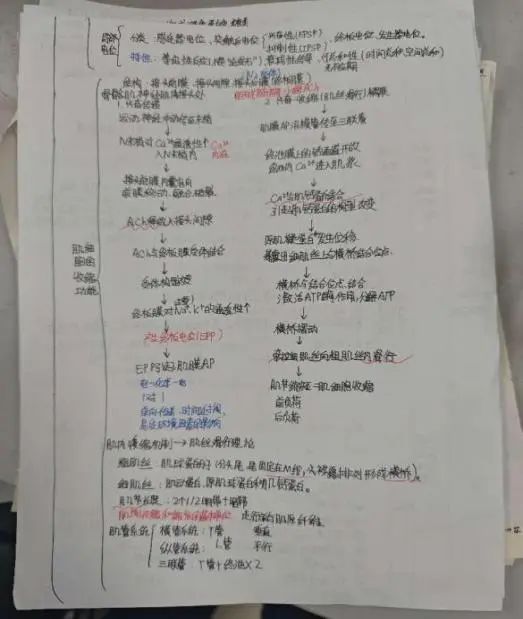 局部电位
分类：感受器电位、突触后电位 兴奋性(EPSP) 抑制性(IPSP)、终板电位、发生器电位。
特性：
总和性(时间总和,空间总和)
无不应期
结构：接头前膜、接头间隙、接头后膜(终板膜)
骨骼肌神经肌肉接头处
1. 兴奋传递
2. 兴奋-收缩(肌丝滑行)
运动神经冲动传至末梢
肌膜AP沿横管传至三联管
N末梢对Ca²⁺通透性↑
Ca²⁺内流
入N末梢内
终池膜上的钙通道开放
终池内Ca²⁺进入肌浆
接头前膜内囊泡向
前膜移动、融合、破裂
Ca²⁺与肌钙蛋白结合
引起肌钙蛋白的构型改变
ACh释放入接头间隙
原肌凝蛋白发生位移
暴露出细肌丝上与横桥结合位点
ACh与终板膜受体结合
受体构型改变
横桥与结合位点结合
激活ATP酶作用,分解ATP
终板膜对Na⁺、K⁺的通透性↑
横桥摆动
产生终板电位(EPP)
牵拉细肌丝向粗肌丝内滑行
EPP引起肌膜AP
肌节缩短=肌细胞收缩
电-化学-电
1对1
前负荷
单向传递、时间延搁、
后负荷
易受环境因素的影响
肌肉圈圈收缩功能
肌肉收缩机制→肌丝滑行理论
粗肌丝：肌球蛋白
形成横桥)
细肌丝：肌动蛋白、原肌球蛋白和肌钙蛋白。
肌管系统
横管系统：T管 垂直
纵管系统：L管 平行
三联管：T管+终池×2